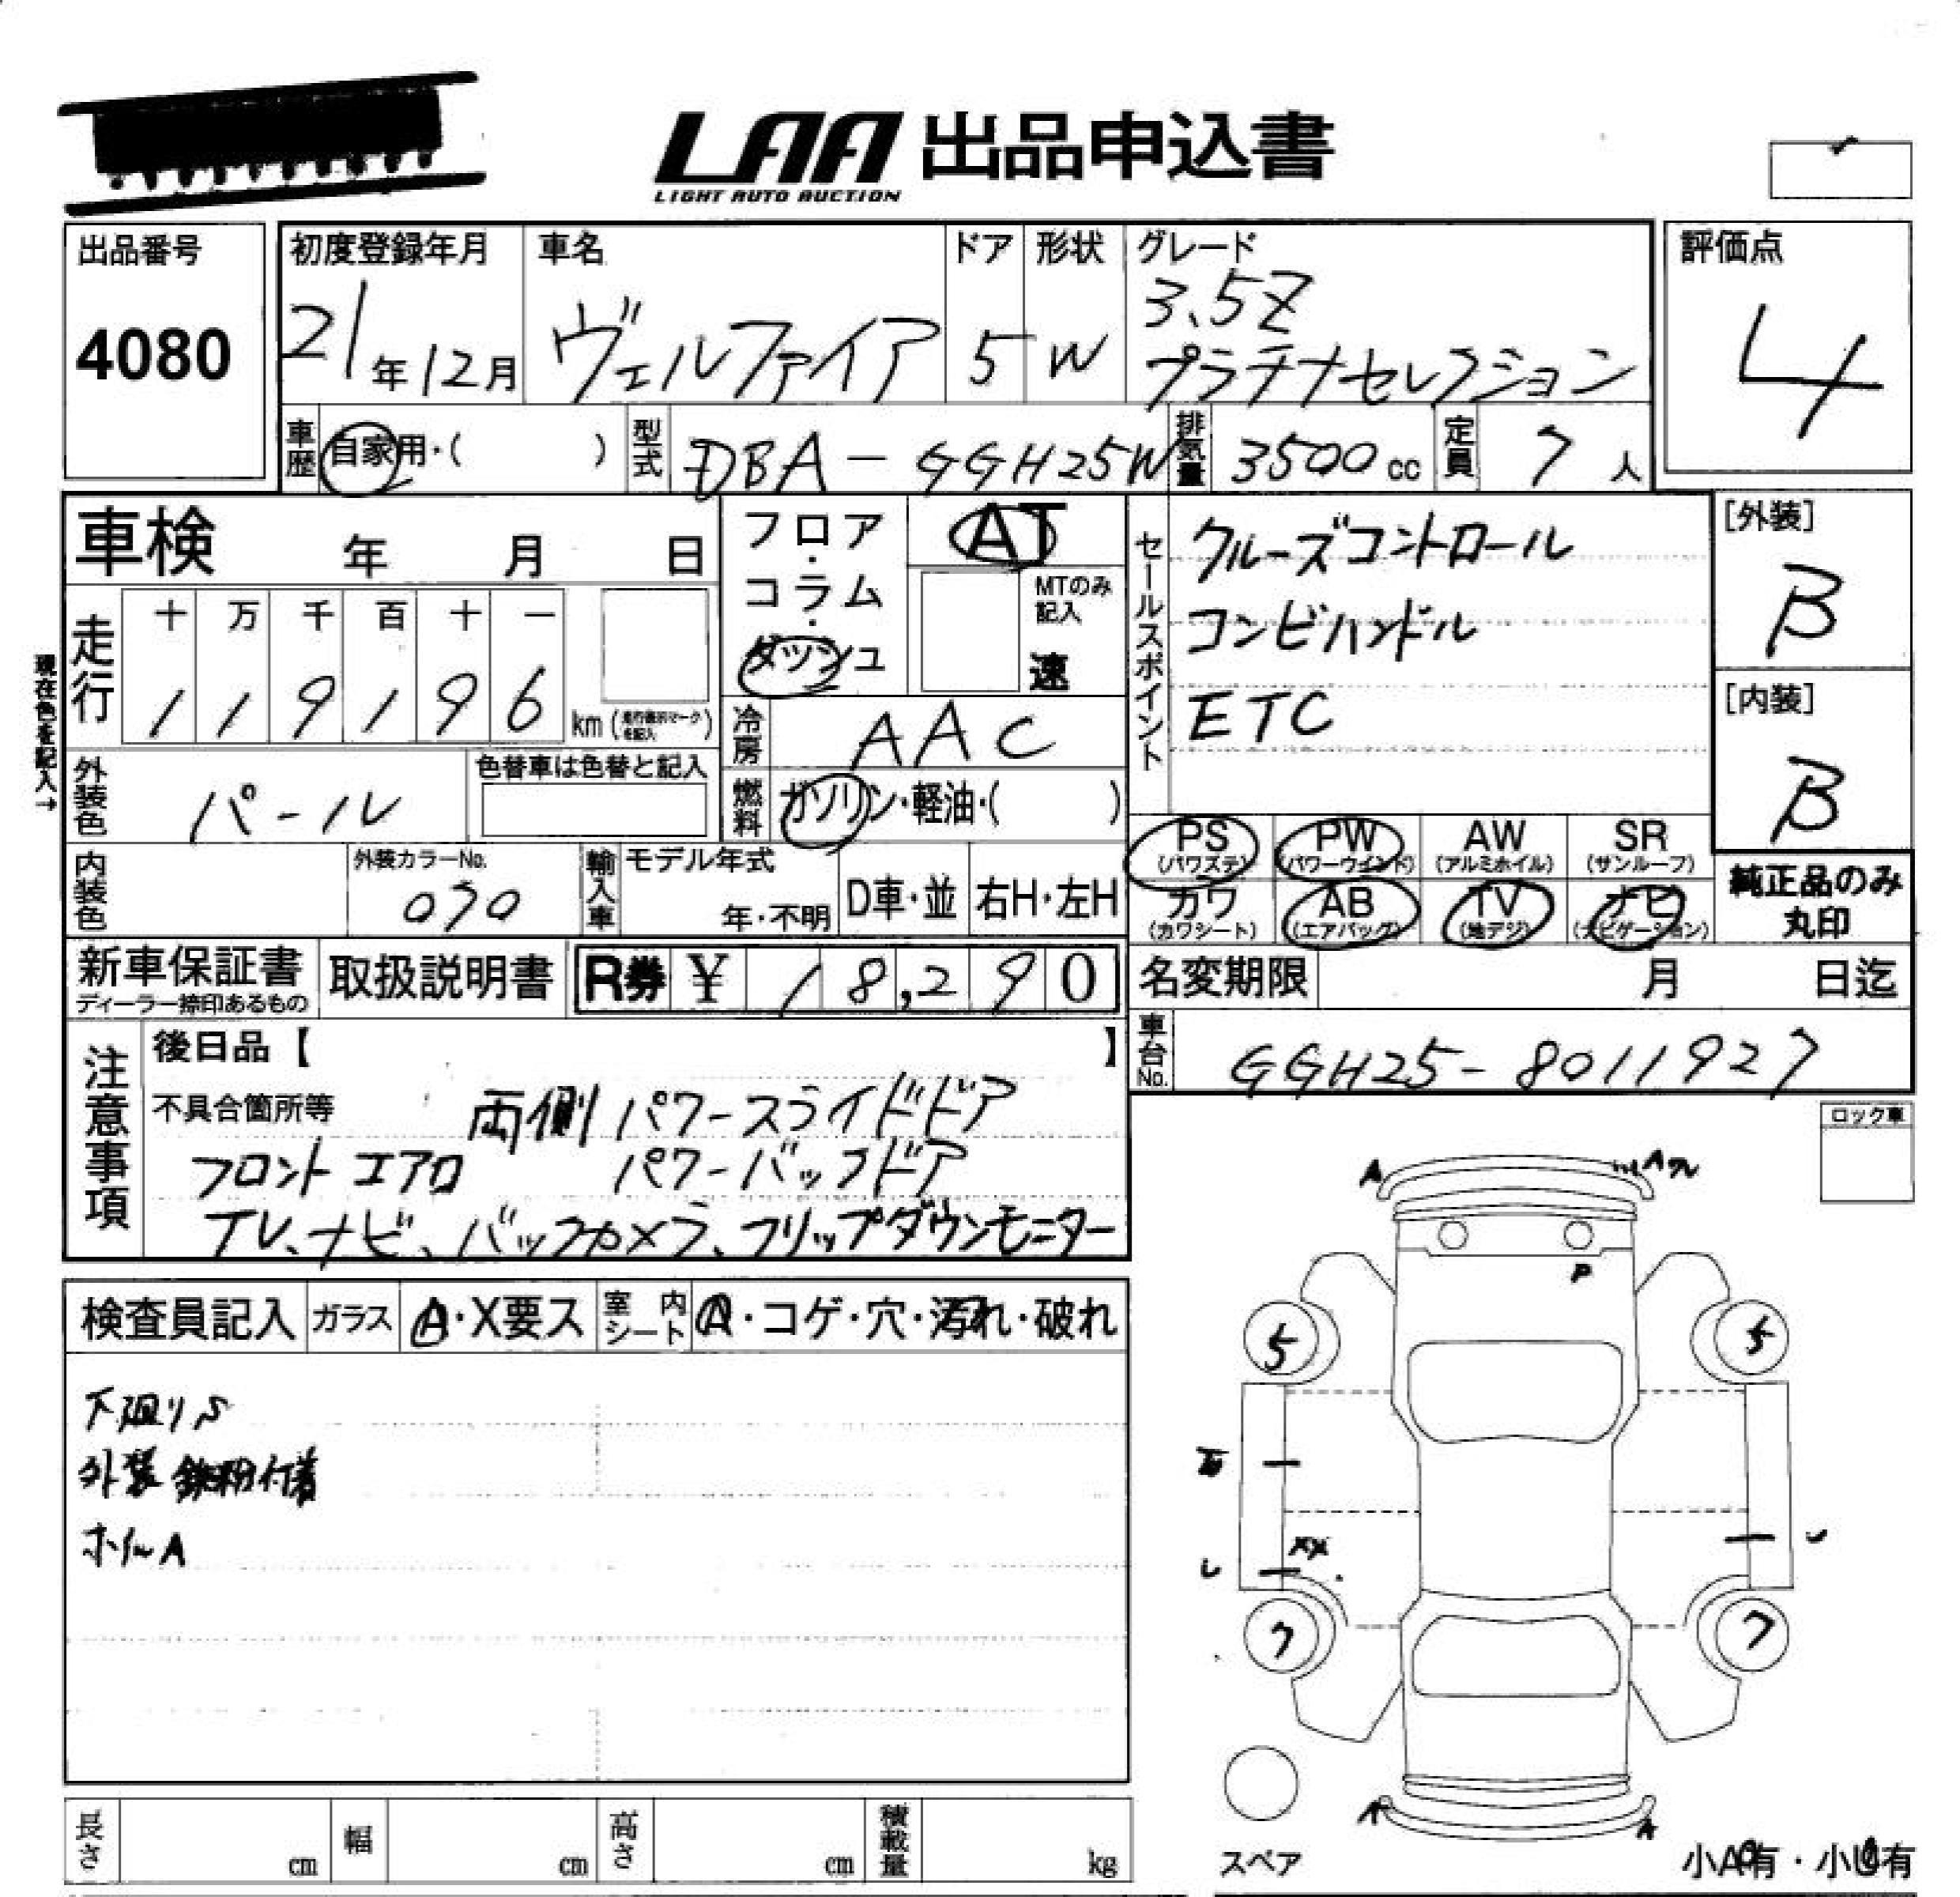 LAA 出品申込書
LIGHT AUTO AUCTION
出品番号
4080
初度登録年月
21年12月
車名
ヴェルファイア
ドア
5
形状
W
グレード
3.5Z
プラチナセレクション
評価点
4
車歴
自家用・( )
型式
DBA-GGH25W
排気量
3500cc
定員
7人
車検 年 月 日
走行
十 万 千 百 十 一
1 1 9 1 9 6 km (走行表示マークを記入)
フロア・コラム・ダッシュ
AT
MTのみ記入
速
セールスポイント
クルーズコントロール
コンビハンドル
ETC
[外装]
B
[内装]
B
現在色を記入→
外装色
パール
色替車は色替と記入
冷房
AAC
燃料
ガソリン・軽油・( )
PS
(パワステ)
PW
(パワーウインド)
AW
(アルミホイル)
SR
(サンルーフ)
カワ
(カワシート)
AB
(エアバッグ)
TV
(地デジ)
ナビ
(ナビゲーション)
純正品のみ
丸印
内装色
外装カラーNo.
070
輸入車
モデル年式
年・不明
D車・並
右H・左H
新車保証書
ディーラー捺印あるもの
取扱説明書
R券 ¥ 18,290
名変期限 月 日迄
車台No.
GGH25-8011927
注意事項
後日品【 】
不具合箇所等 両側パワースライドドア
フロントエアロ パワーバックドア
TV、ナビ、バックカメラ、フリップダウンモニター
ロック車
検査員記入 ガラス A・X要ス 室内シート A・コゲ・穴・汚れ・破れ
下廻りS
外装鉄粉付着
ホイールA
A
A
P
5
5
XX
レ
レ
7
7
A
A
スペア
小A有・小U有
長さ cm
幅 cm
高さ cm
積載量 kg